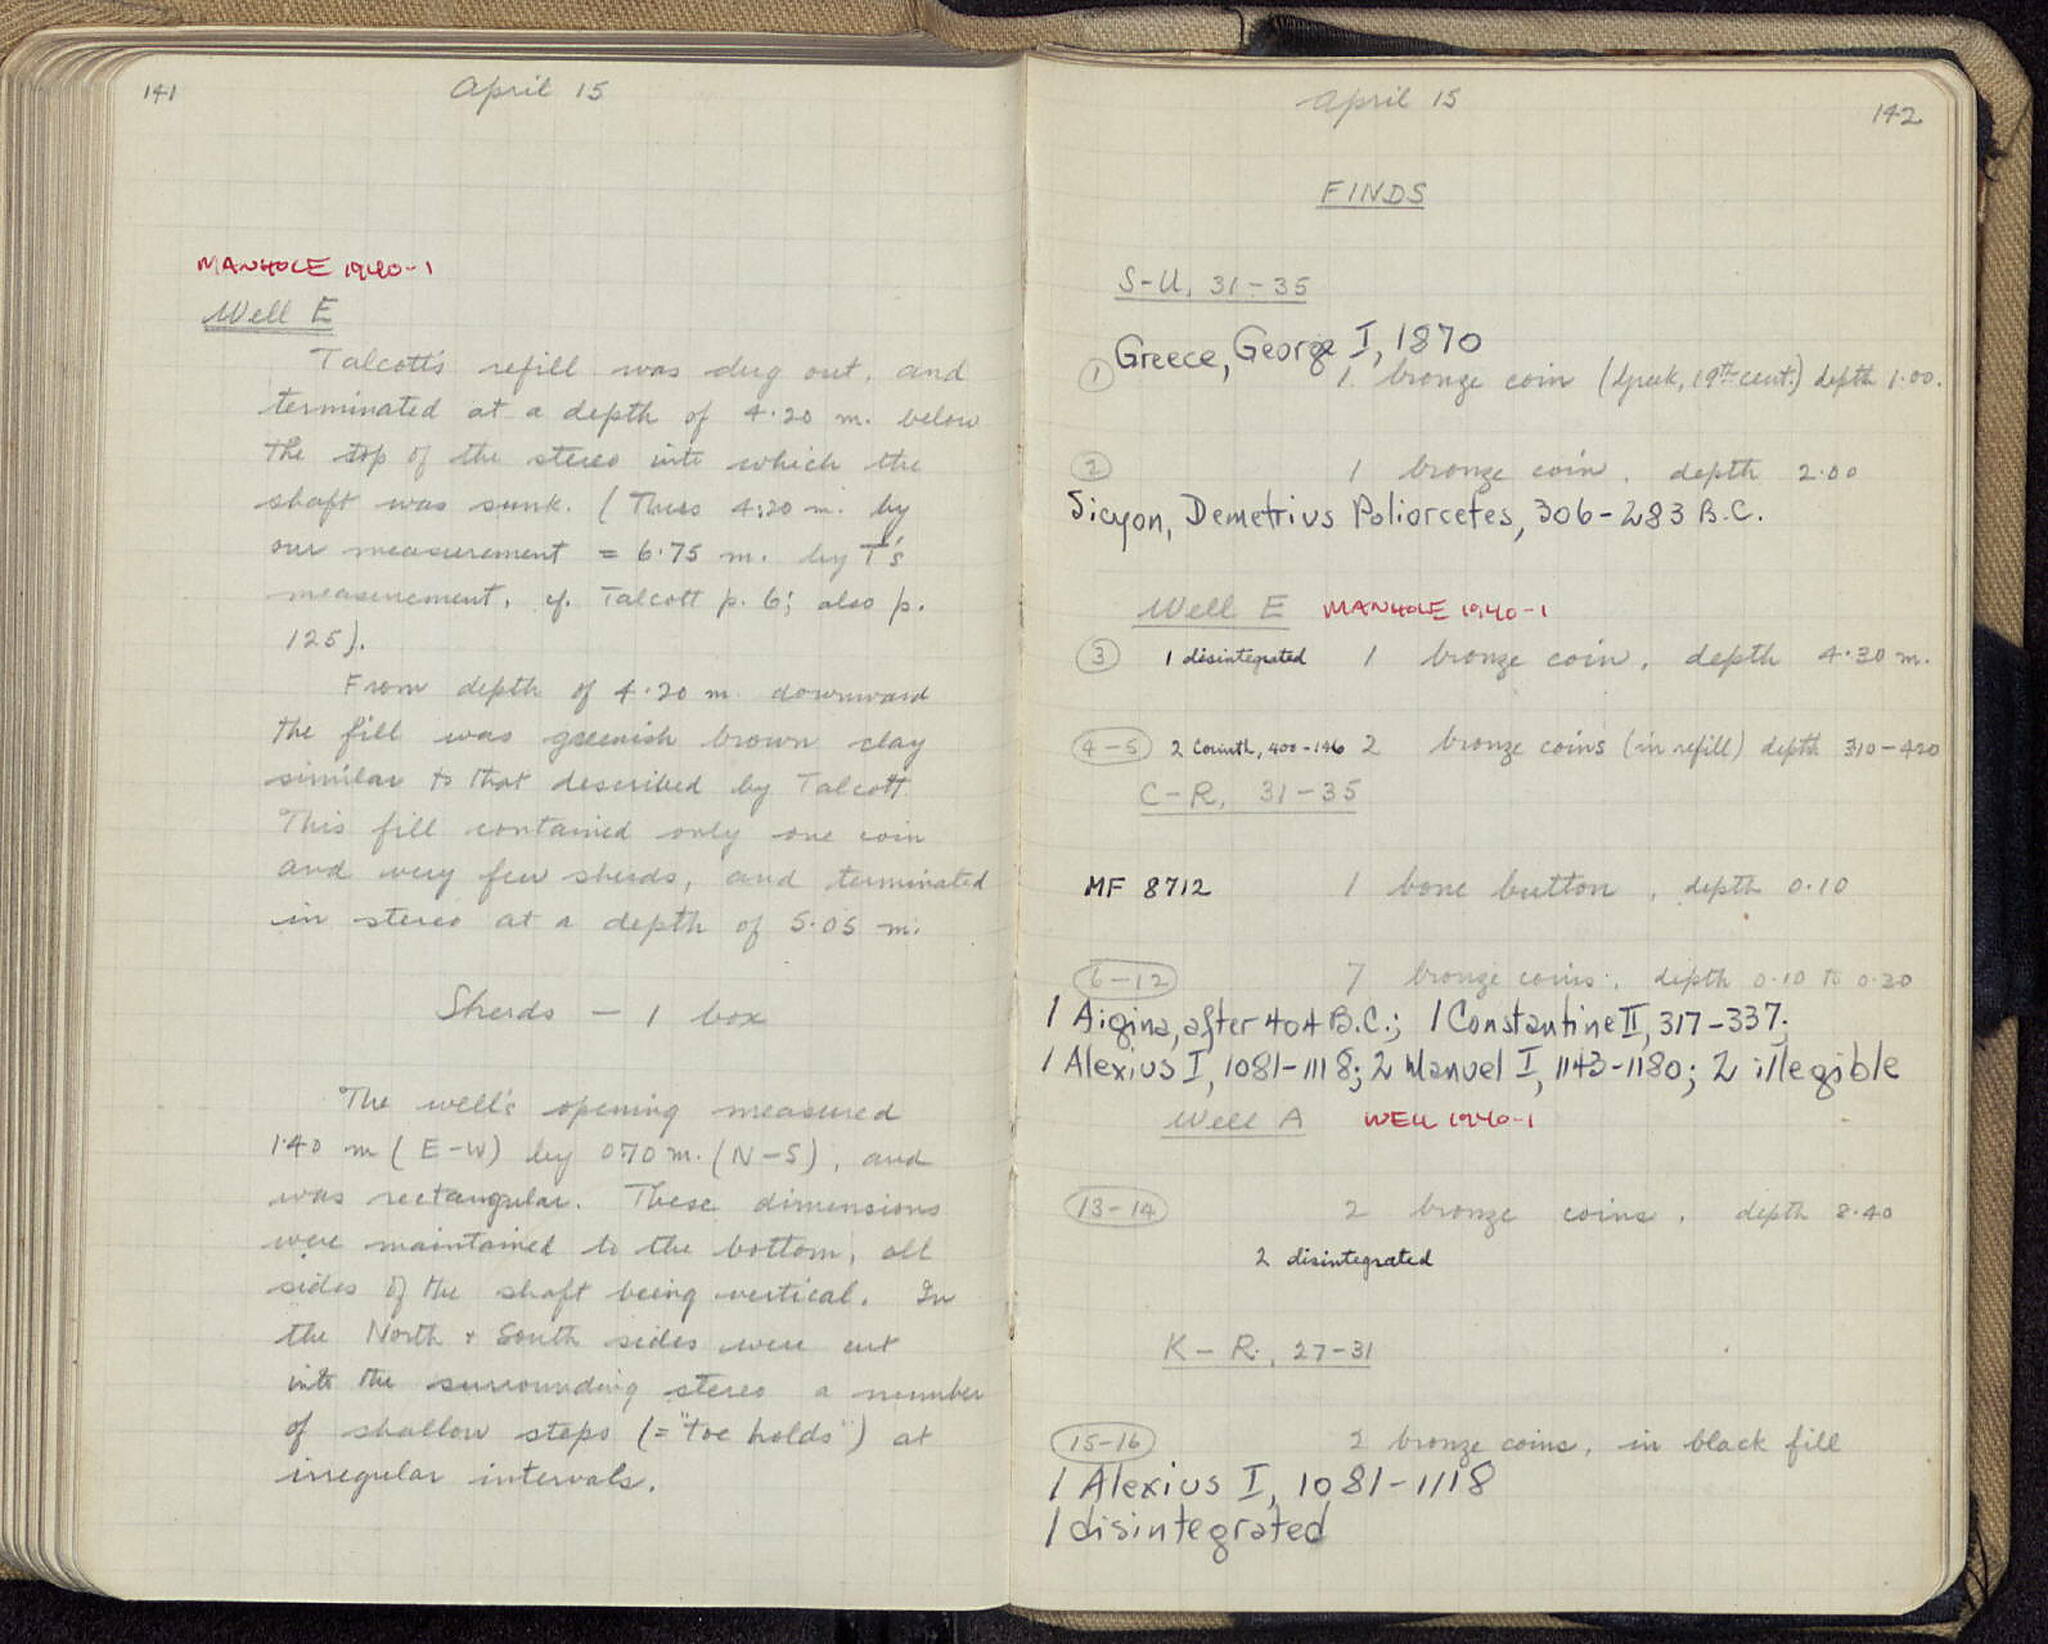 141
April 15
MANHOLE 1940-1
Well E
Talcott's refill was dug out, and
terminated at a depth of 4.20 m. below
the top of the stereo into which the
shaft was sunk. (Thus 4.20 m. by
our measurement = 6.75 m. by T's
measurement, cf. Talcott p. 6; also p.
125).
From depth of 4.20 m. downward
the fill was greenish brown clay
similar to that described by Talcott
This fill contained only one coin
and very few sherds, and terminated
in stereo at a depth of 5.05 m.
Sherds — 1 box
The well's opening measured
1.40 m (E-W) by 0.70 m. (N-S), and
was rectangular. These dimensions
were maintained to the bottom, all
sides of the shaft being vertical. In
the North + South sides were cut
into the surrounding stereo a number
of shallow steps (= "toe holds") at
irregular intervals.
April 15
142
FINDS
S-U, 31-35
Greece, George I, 1870
1 1 bronze coin (Greek, 19th cent.) depth 1.00.
2 1 bronze coin, depth 2.00
Sicyon, Demetrius Poliorcetes, 306-283 B.C.
Well E MANHOLE 1940-1
3 1 disintegrated 1 bronze coin, depth 4.30 m.
4-5 2 Corinth, 400-146 2 bronze coins (in refill) depth 310-420
C-R, 31-35
MF 8712 1 bone button, depth 0.10
6-12 7 bronze coins, depth 0.10 to 0.20
1 Aigina, after 404 B.C.; 1 Constantine II, 317-337;
1 Alexius I, 1081-1118; 2 Manuel I, 1143-1180; 2 illegible
Well A WELL 1940-1
13-14 2 bronze coins, depth 8.40
2 disintegrated
K-R, 27-31
15-16 2 bronze coins, in black fill
1 Alexius I, 1081-1118
1 disintegrated